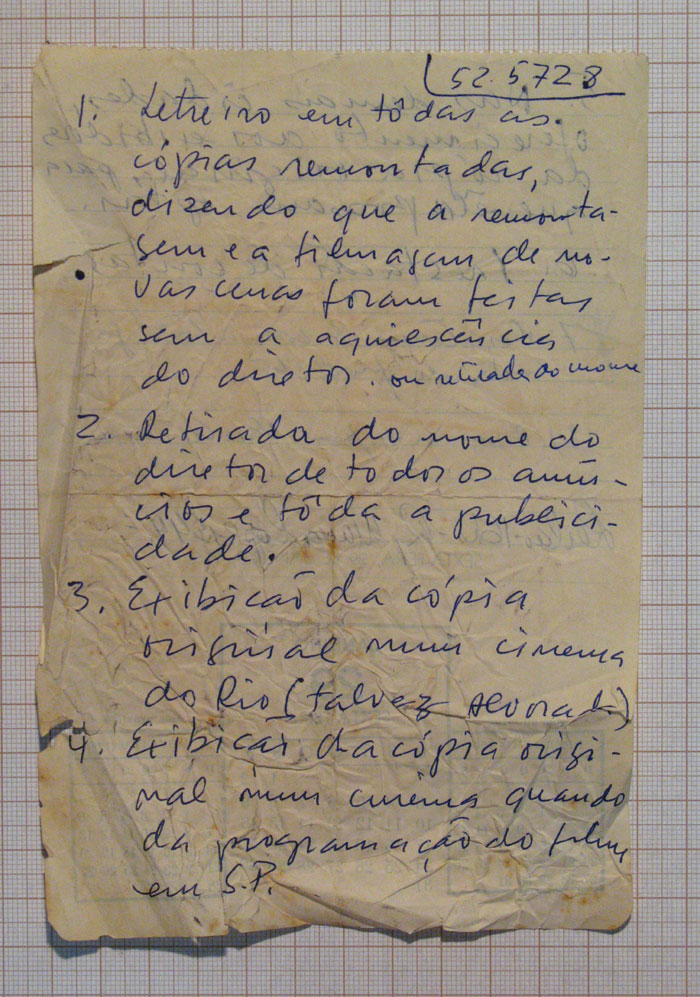 52.5728
1. Letreiro em tôdas as
cópias remontadas,
dizendo que a remonta-
gem e a filmagem de no-
vas cenas foram feitas
sem a aquiescência
do diretor. ou retirada do nome
2. Retirada do nome do
diretor de todos os anún-
cios e tôda a publici-
dade.
3. Exibição da cópia
original num cinema
do Rio (talvez Alvorada)
4. Exibição da cópia origi-
nal num cinema quando
da programação do filme
em S.P.